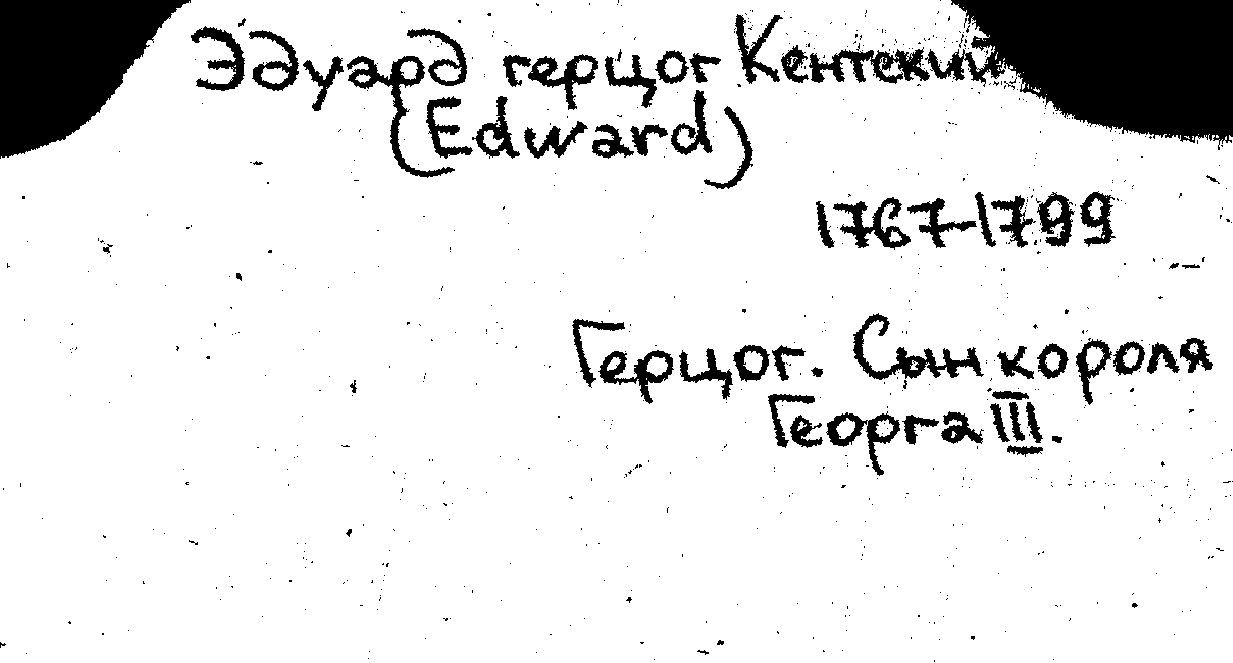 Эдуард герцог Кентский
(Edward)
1767-1799
Герцог. Сын короля
Георга III.